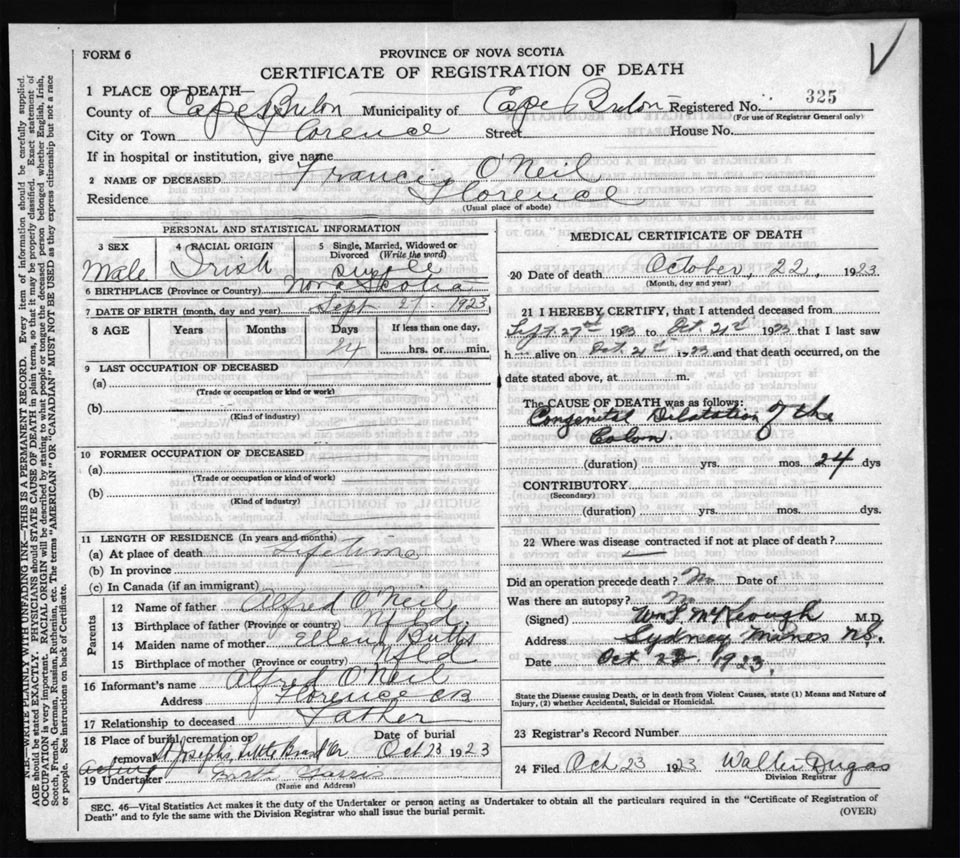 FORM 6
PROVINCE OF NOVA SCOTIA
CERTIFICATE OF REGISTRATION OF DEATH
1 PLACE OF DEATH—
County of Cape Breton Municipality of Cape Breton Registered No. 325
(For use of Registrar General only)
City or Town Florence Street House No.
If in hospital or institution, give name
2 NAME OF DECEASED Francis O'Neil
Residence Florence
(Usual place of abode)
PERSONAL AND STATISTICAL INFORMATION
3 SEX 4 RACIAL ORIGIN 5 Single, Married, Widowed or Divorced (Write the word)
Male Irish single
6 BIRTHPLACE (Province or Country) Nova Scotia
7 DATE OF BIRTH (month, day and year) Sept 27 1923
8 AGE Years Months Days If less than one day,
24 hrs. or min.
9 LAST OCCUPATION OF DECEASED
(a)
(Trade or occupation or kind or work)
(b)
(Kind of industry)
10 FORMER OCCUPATION OF DECEASED
(a)
(Trade or occupation or kind of work)
(b)
(Kind of industry)
11 LENGTH OF RESIDENCE (In years and months)
(a) At place of death Lifetime
(b) In province
(c) In Canada (if an immigrant)
Parents
12 Name of father Alfred O'Neil
13 Birthplace of father (Province or country) Nfld
14 Maiden name of mother Ellen Butts
15 Birthplace of mother (Province or country) Nfld
16 Informant's name Alfred O'Neil
Address Florence CB
17 Relationship to deceased Father
18 Place of burial, cremation or removal St Josephs, Little Brasd'Or Date of burial Oct 23 1923
Acting
19 Undertaker Harris
(Name and Address)
MEDICAL CERTIFICATE OF DEATH
20 Date of death October, 22, 1923
(Month, day and year)
21 I HEREBY CERTIFY, that I attended deceased from
Sept. 27th 1923 to Oct. 21st 1923 that I last saw
h alive on Oct 21st 1923 and that death occurred, on the
date stated above, at m.
The CAUSE OF DEATH was as follows:
Congenital Dilatation of the
Colon.
(duration) yrs. mos. 24 dys
CONTRIBUTORY
(Secondary)
(duration) yrs. mos. dys.
22 Where was disease contracted if not at place of death?
Did an operation precede death? No Date of
Was there an autopsy? No
(Signed) W F McKeough M.D.
Address Sydney Mines N.S.
Date Oct 23 1923.
State the Disease causing Death, or in death from Violent Causes, state (1) Means and Nature of
Injury, (2) whether Accidental, Suicidal or Homicidal.
23 Registrar's Record Number
24 Filed Oct 23 1923 Walter Dugas
Division Registrar
SEC. 46—Vital Statistics Act makes it the duty of the Undertaker or person acting as Undertaker to obtain all the particulars required in the "Certificate of Registration of
Death" and to fyle the same with the Division Registrar who shall issue the burial permit.
(OVER)
N.B.—WRITE PLAINLY WITH UNFADING INK—THIS IS A PERMANENT RECORD. Every item of information should be carefully supplied.
AGE should be stated EXACTLY. PHYSICIANS should STATE CAUSE OF DEATH in plain terms, so that it may be properly classified. Exact statement of
OCCUPATION is very important. RACIAL ORIGIN will be described by stating to what people or tongue the deceased person belonged, whether English, Irish,
Scotch, French, German, Russian, Ruthenian, etc. The terms "AMERICAN" OR "CANADIAN" MUST NOT BE USED as they express citizenship but not a race
or people. See instructions on back of Certificate.